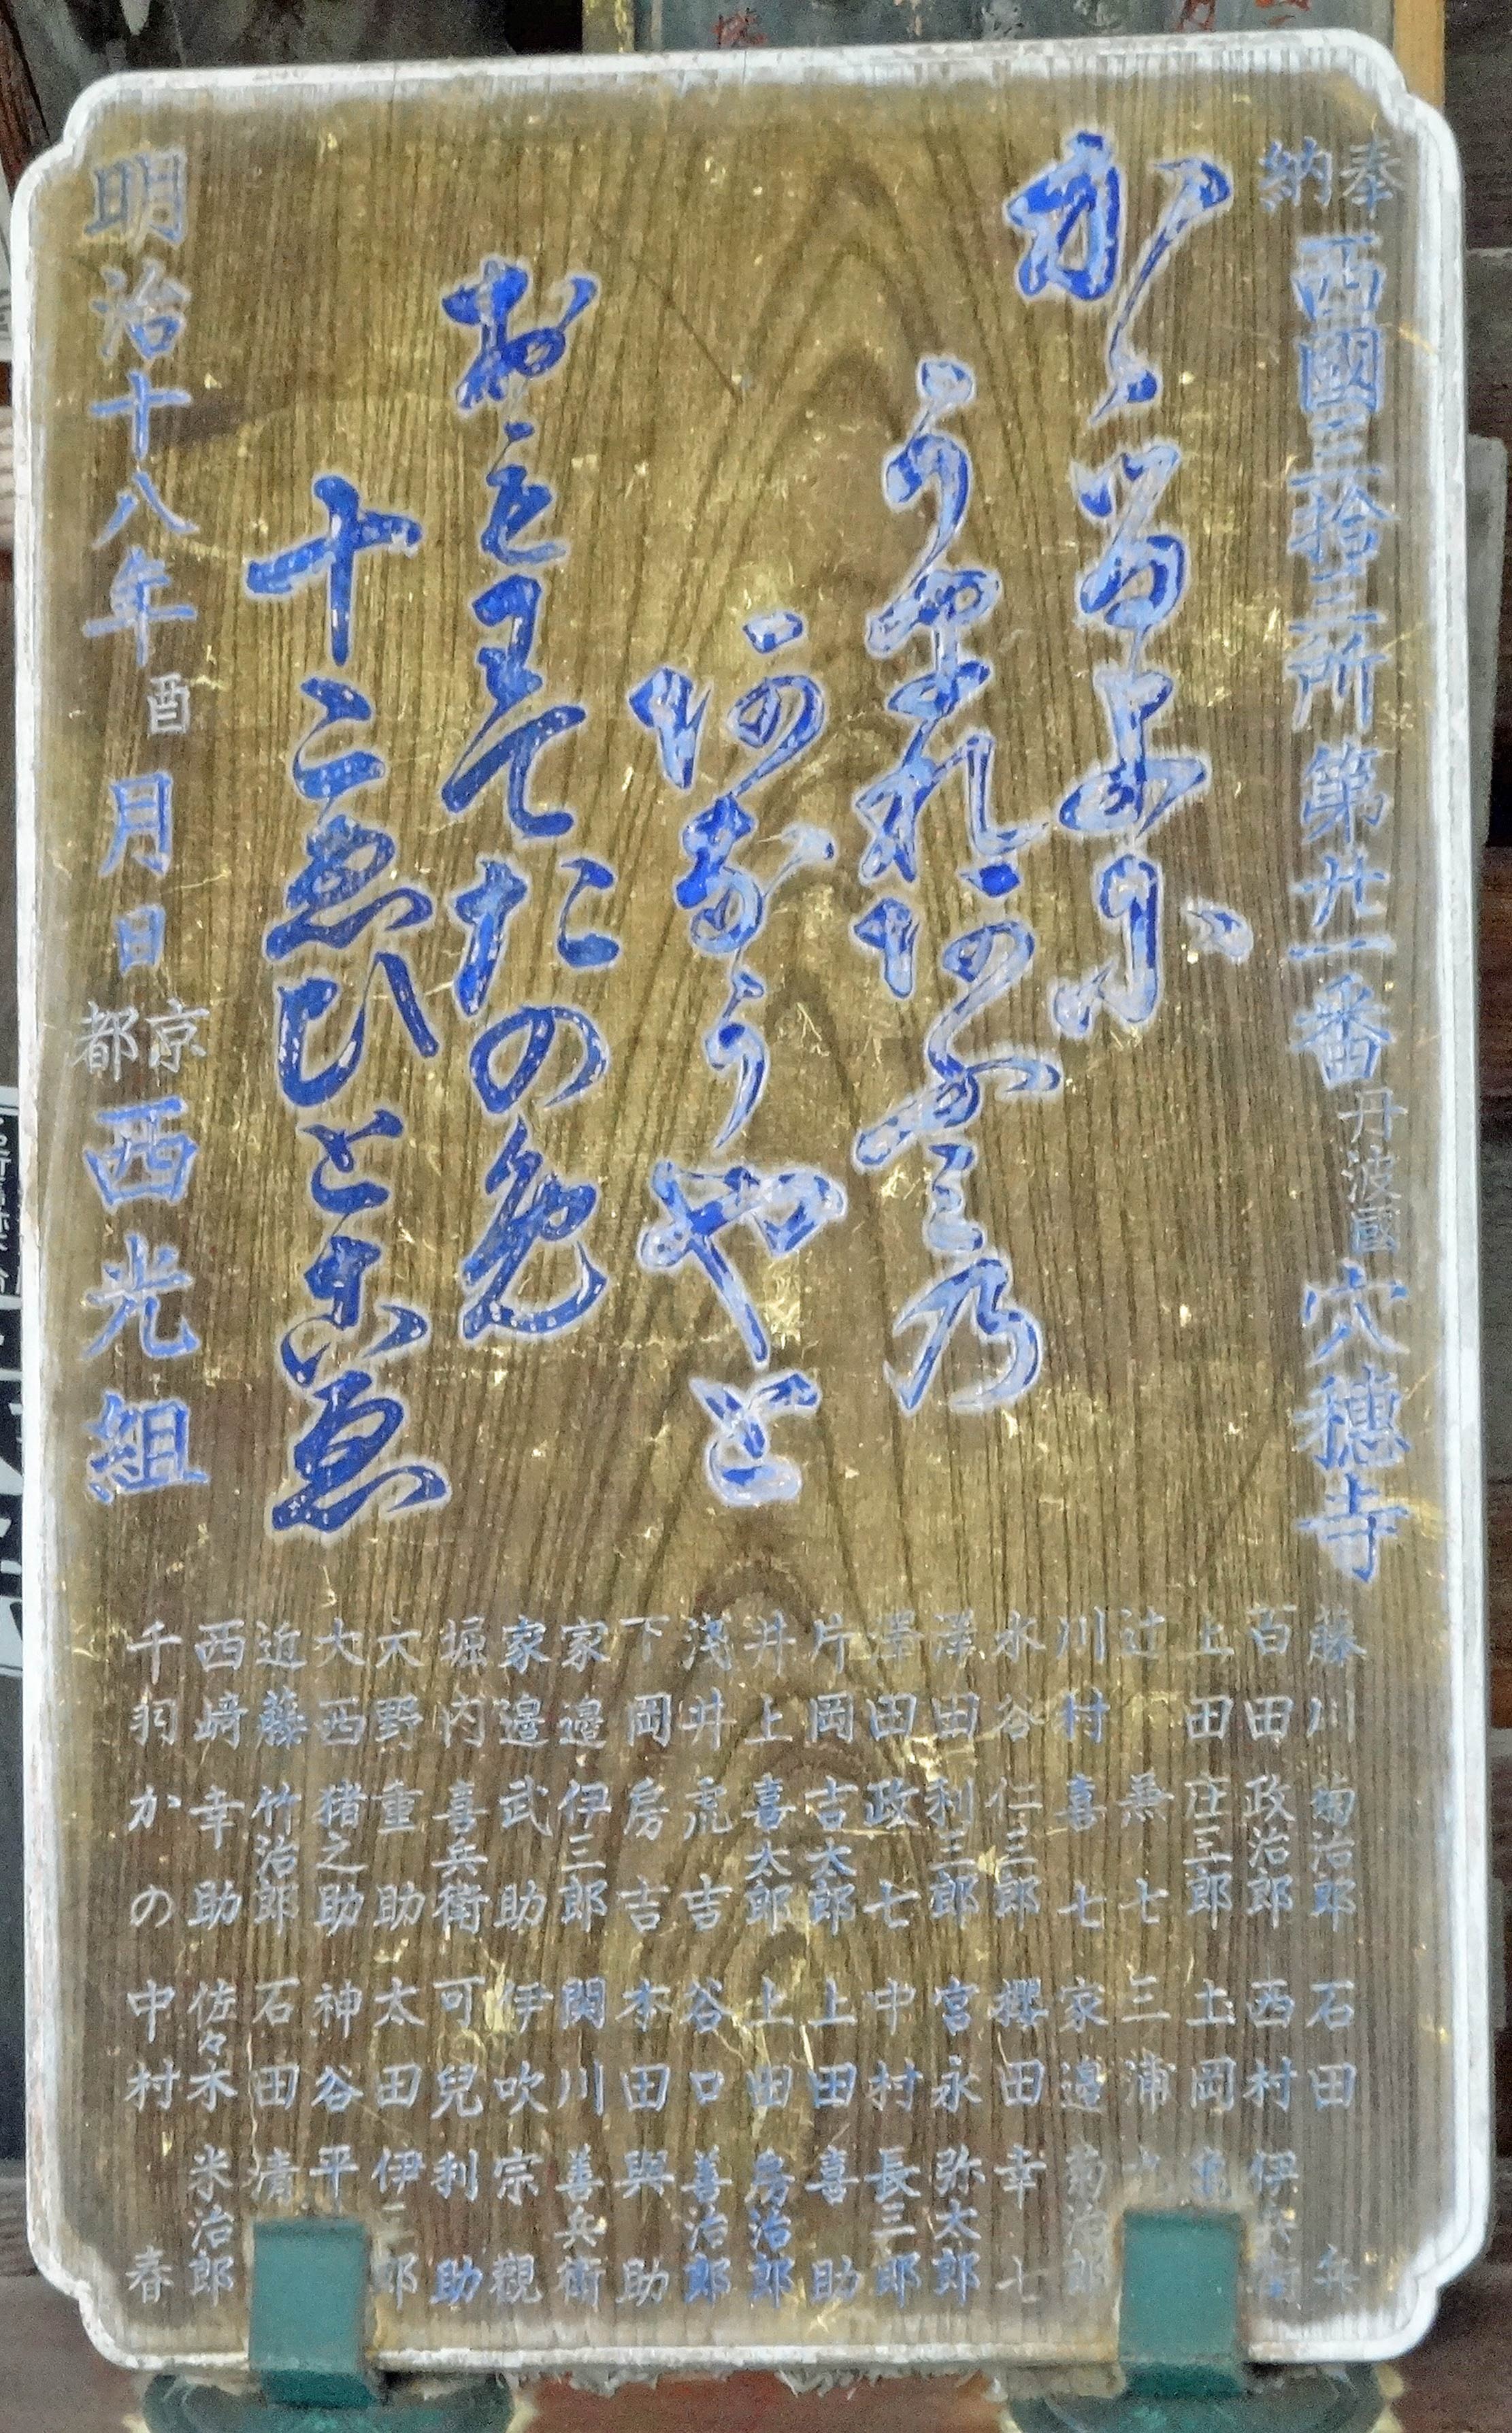 奉納 西國三拾三所第廿一番 丹波國 穴穗寺
かゝるよに
うまれあふ三乃
あなうやと
おもハてたの免
十こゑひとこゑ
明治十八年酉 月 日 京都 西光組
藤川菊治郎
百田政治郎
上田庄三郎
辻兼七
川村喜七
水谷仁三郎
澤田利三郎
澤田政七
片岡吉太郎
井上喜太郎
淺井虎吉
下岡房吉
家邉伊三郎
家邉武助
堀内喜兵衛
六野重助
大西猪之助
近藤竹治郎
西﨑幸助
千羽かの
石田
西村伊兵衛
土岡
三浦
家邉菊治郎
櫻田幸七
宮永弥太郎
中村長三郎
上田喜助
上田房治郎
谷口善治郎
本田與助
関川善兵衛
伊吹宗觀
可兒利助
太田伊三郎
神谷平
石田清
佐々木米治郎
中村春